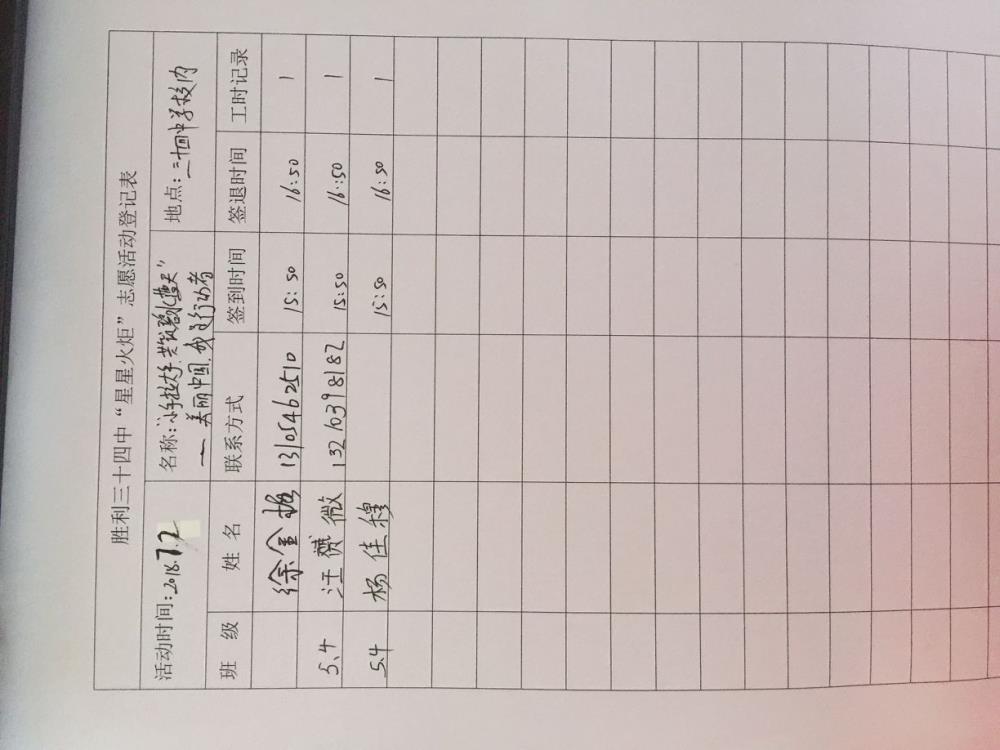 胜利三十四中“星星火炬”志愿活动登记表
活动时间：2018.7.2 名称：“小手拉大手，共筑碧水蓝天” 地点：三十四中学校内
——美丽中国，我是行动者
班 级 姓 名 联系方式 签到时间 签退时间 工时记录
徐金振 13105462510 15:50 16:50 1
5.4 汪薇 13210398182 15:50 16:50 1
5.4 杨佳穆 15:50 16:50 1